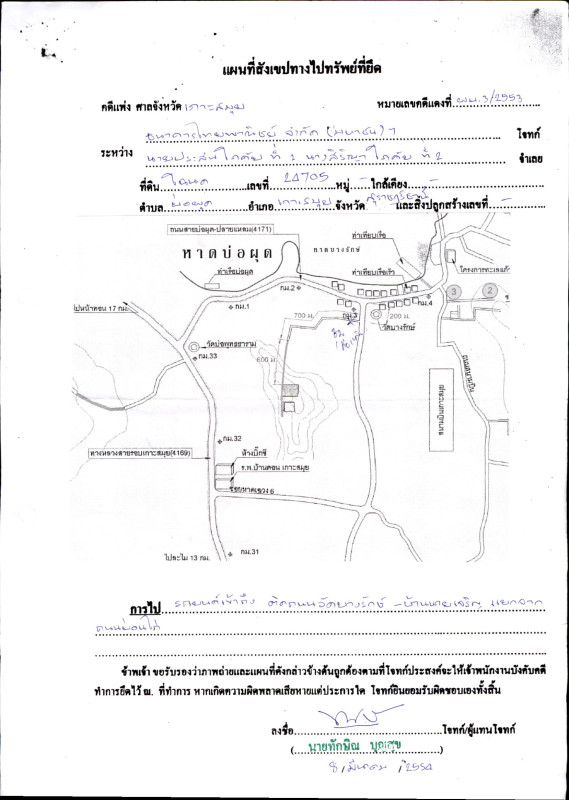 แผนที่สังเขปทางไปทรัพย์ที่ยึด
คดีแพ่ง ศาลจังหวัด เกาะสมุย หมายเลขคดีแดงที่ ผบ.3/2553
ธนาคารไทยพาณิชย์ จำกัด (มหาชน) โจทก์
ระหว่าง
นายประสน โภคัย ที่ 1 นางสิริญา โภคัย ที่ 2 จำเลย
ที่ดิน โฉนด เลขที่ 24705 หมู่ - ใกล้เคียง -
ตำบล บ่อผุด อำเภอ เกาะสมุย จังหวัด สุราษฎร์ธานี และสิ่งปลูกสร้างเลขที่ -
ถนนสายบ่อผุด-ปลายแหลม(4171)
หาดบ่อผุด
หาดบางรักษ์
ท่าเทียบเรือ
ท่าเรือบ่อผุด
ท่าเทียบเรือเร็ว
โครงการทะเลแก้ว
กม.2
3
2
กม.1
กม.3
กม.4
ไปหน้าทอน 17 กม.
700 ม.
200 ม.
วัดบางรักษ์
วัดบ่อพุทธาราม
กม.33
600 ม.
ถนนสนามบิน
สนามบินเกาะสมุย
กม.32
ทางหลวงสายรอบเกาะสมุย(4169)
ห้างบิ๊กซี
ร.พ.บ้านดอน เกาะสมุย
ซอยหาดเฉวง 6
ไปละไม 13 กม.
กม.31
การไป รถยนต์เข้าถึง ติดถนนวัดบางรักษ์ - บ้านนายเจริญ แยกจาก
ข้าพเจ้า ขอรับรองว่าภาพถ่ายและแผนที่ดังกล่าวข้างต้นถูกต้องตามที่โจทก์ประสงค์จะให้เจ้าพนักงานบังคับคดี
ทำการยึดไว้ ณ. ที่ทำการ หากเกิดความผิดพลาดเสียหายแต่ประการใด โจทก์ยินยอมรับผิดชอบเองทั้งสิ้น
ลงชื่อ โจทก์/ผู้แทนโจทก์
(นายทักษิณ บุญสุข)
8 / มีนาคม / 2554